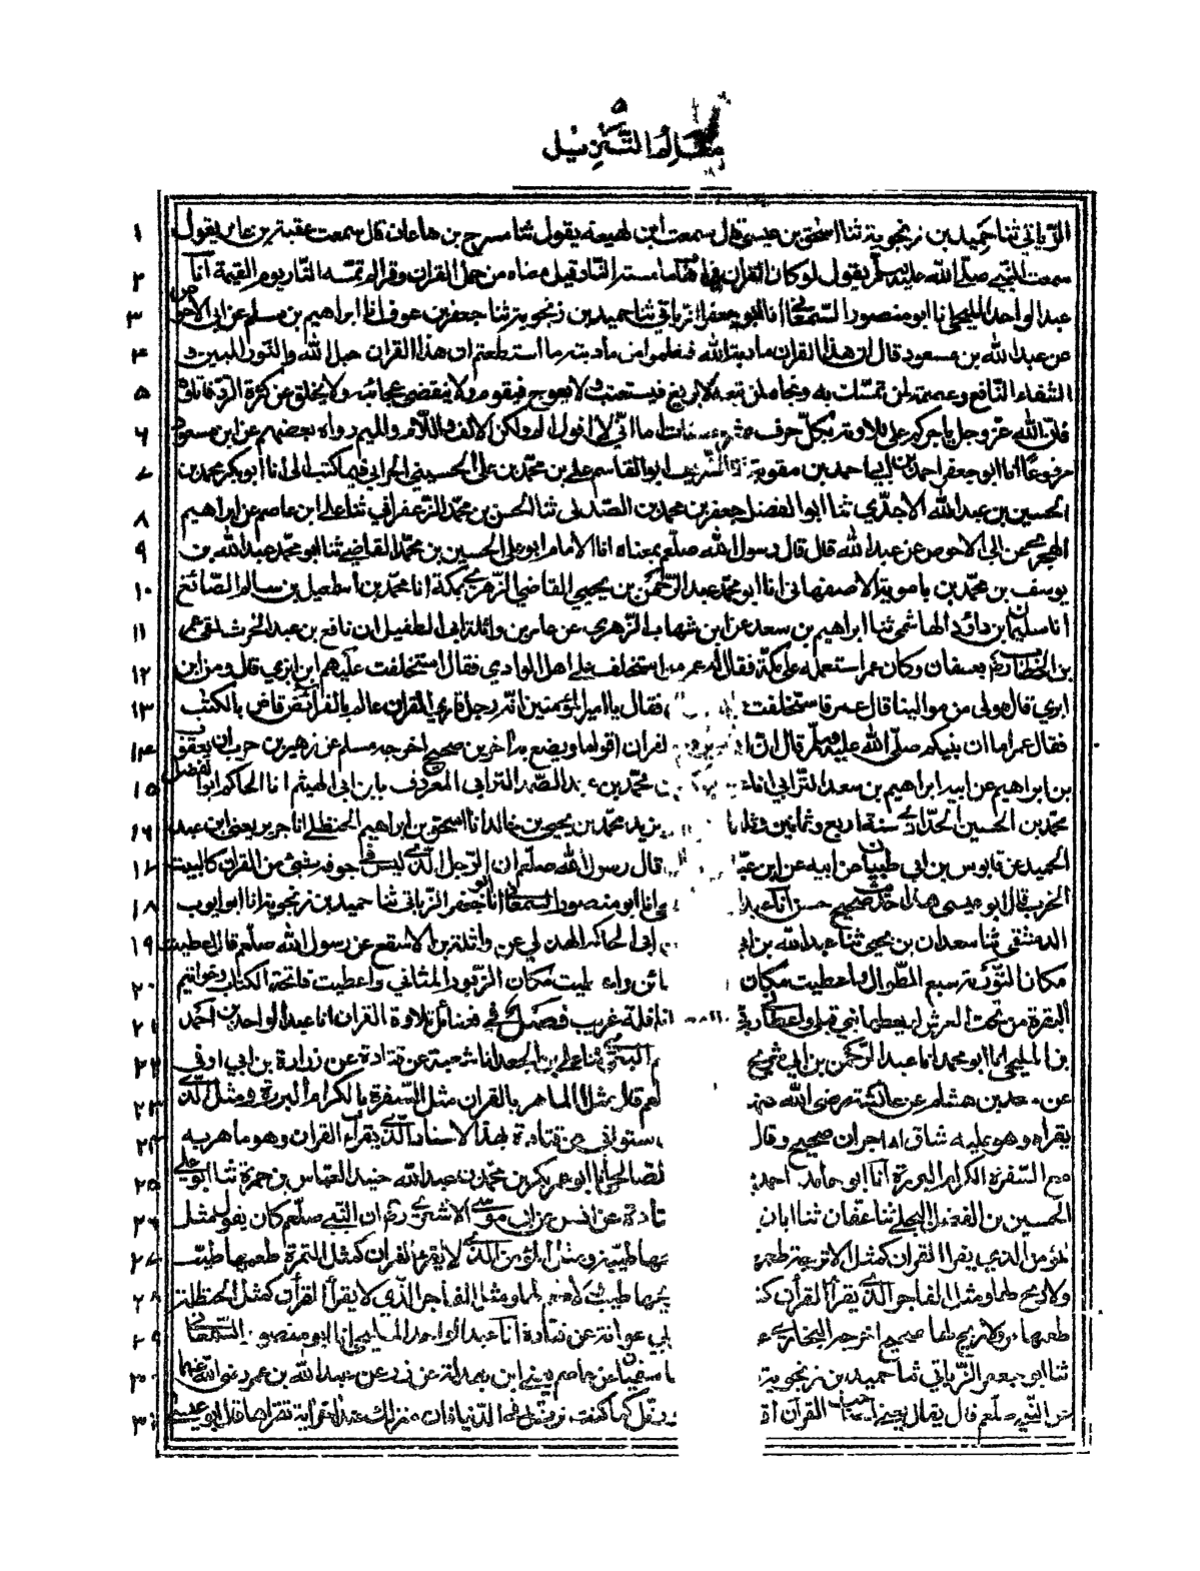 ٥
معالم التنزيل
١ الرّياني ثنا حميد بن زنجوية ثنا اسحق بن عيسى قال سمعت ابن لهيعة يقول ثنا مسرح بن هاعان قال سمعت عقبة بن عامر يقول
٢ سمعت النبي صلى الله عليه وسلم يقول لو كان القران في اهاب ما مسته النار قيل معناه من حمل القران وقراه لم تمسه النار يوم القيمة انا
٣ عبد الواحد المليحي انا ابو منصور السمعاني انا ابو جعفر الرياني ثنا حميد بن زنجوية ثنا جعفر بن عوف انا ابراهيم بن مسلم عن ابي الاحوص
٤ عن عبد الله بن مسعود قال ان هذا القران مادبة الله فتعلموا من مادبته ما استطعتم ان هذا القران حبل الله والنور المبين و
٥ الشفاء النافع وعصمة لمن تمسك به ونجاة لمن تبعه لا يزيغ فيستعتب ولا يعوج فيقوم ولا ينقضي عجائبه ولا يخلق عن كثرة الرد فاتلوه
٦ فان الله عز وجل ياجركم على تلاوته بكل حرف عشر حسنات اما اني لا اقول الم ولكن الالف واللام والميم رواه بعضهم عن ابن مسعود
٧ مرفوعا انا ابو جعفر احمد بن ابي احمد بن متوية انا الشريف ابو القاسم علي بن محمد بن علي الحسيني الحراني فيما كتب الي انا ابو بكر محمد بن
٨ الحسين بن عبد الله الاجري ثنا ابو الفضل جعفر بن محمد بن الصندلي ثنا الحسن بن محمد الزعفراني ثنا علي ابن عاصم عن ابراهيم
٩ الهجري عن ابي الاحوص عن عبد الله قال قال رسول الله صلعم بمعناه انا الامام ابو علي الحسين بن محمد القاضي ثنا ابو محمد عبد الله بن
١٠ يوسف بن محمد بن بامويه الاصفهاني انا ابو محمد عبد الرحمن بن يحيى القاضي الزهري بمكة انا محمد بن اسمعيل بن سالم الصائغ
١١ انا سليمان بن داؤد الهاشمي ثنا ابراهيم بن سعد عن ابن شهاب الزهري عن عامر بن واثلة ابي الطفيل ان نافع بن عبد الحرث لقي عمر
١٢ بن الخطاب رض بعسفان وكان عمر استعمله على مكة فقال له عمر من استخلفت على اهل الوادي فقال استخلفت عليهم ابن ابزي قال ومن ابن
١٣ ابزي قال مولى من موالينا قال عمر فاستخلفت فقال يا امير المؤمنين انه رجل قاري القران عالم بالفرائض قاض بالكتب
١٤ فقال عمر اما ان نبيكم صلى الله عليه وسلم قال ان القران اقواما ويضع به اخرين صحيح اخرجه مسلم عن زهير بن حرب ان يعقوب
١٥ بن ابراهيم عن ابيه ابراهيم بن سعد الترابي انا محمد بن عبد الصمد الترابي المعروف بابن ابي الهيثم انا الحاكم ابو الفضل
١٦ محمد بن الحسين الحدادي سنة اربع وثمانين يزيد محمد بن يحيى بن خالد انا اسحق بن ابراهيم الحنظلي انا جرير يعني ابن عبد
١٧ الحميد عن قابوس بن ابي ظبيان عن ابيه عن ابن عبا قال رسول الله صلعم ان الرجل الذي ليس في جوفه شيئ من القران كالبيت
١٨ الخرب قال ابو عيسى هذا حديث صحيح حسن انا عبد انا ابو منصور السمعاني انا ابو جعفر الرياني ثنا حميد بن زنجوية انا ابو ايوب
١٩ الدمشقي ثنا سعدان بن يحيى ثنا عبد الله بن ابي ابي الحاكم الهذلي عن واثلة بن الاسقع عن رسول الله صلعم قال اعطيت
٢٠ مكان التورية سبع الطوال واعطيت مكان ائن واعطيت مكان الزبور المثاني واعطيت فاتحة الكتاب وخواتيم
٢١ البقرة من تحت العرش لم يعطها نبي قبلي واعطاني ر نافلة غريب فصل في فضائل تلاوة القران انا عبد الواحد بن احمد
٢٢ بن المليحي انا ابو محمد انا عبد الرحمن بن ابي شريح البغوي ثنا علي بن الجعد انا شعبة عن قتادة عن زرارة بن ابي اوفى
٢٣ عن سعد بن هشام عن عائشة رضي الله عنها لعم قال مثل الماهر بالقران مثل السفرة بالكرام البررة ومثل الذي
٢٤ يقراه وهو عليه شاق له اجران صحيح وقال ستوائي عن قتادة بهذا الاسناد الذي يقرأ القران وهو ماهر به
٢٥ مع السفرة الكرام البررة انا ابو حامد احمد لصالحي انا ابو عمر بكر بن محمد بن عبد الله حفيد العباس بن حمزة ثنا ابو علي
٢٦ الحسين بن الفضل البجلي ثنا عفان ثنا ابان تادة عن انس عن ابي موسى الاشعري رض ان النبي صلعم كان يقول مثل
٢٧ المؤمن الذي يقرا القران كمثل الاترجة طعمـ يحها طيب ومثل المؤمن الذي لا يقرء القران كمثل التمرة طعمها طيب
٢٨ ولا ريح لها ومثل الفاجر الذي يقرأ القرآن كـ يحها طيب لها ومثل الفاجر الذي لا يقرأ القرآن كمثل الحنظلة
٢٩ طعمها مر ولا ريح لها صحيح اخرجه البخاري عـ بي عوانة عن قتادة انا عبد الواحد المليحي انا ابو منصور السمعاني
٣٠ ثنا ابو جعفر الرياني ثنا حميد بن زنجوية ا سفيان عن عاصم يعني ابن بهدلة عن زر عن عبد الله بن عمر رضي الله عنهما
٣١ عن النبي صلعم قال يقال لصاحب القرآن اقـ ورتل كما كنت ترتل في الدنيا فان منزلك عند اخر اية تقراها قال ابو عيسى